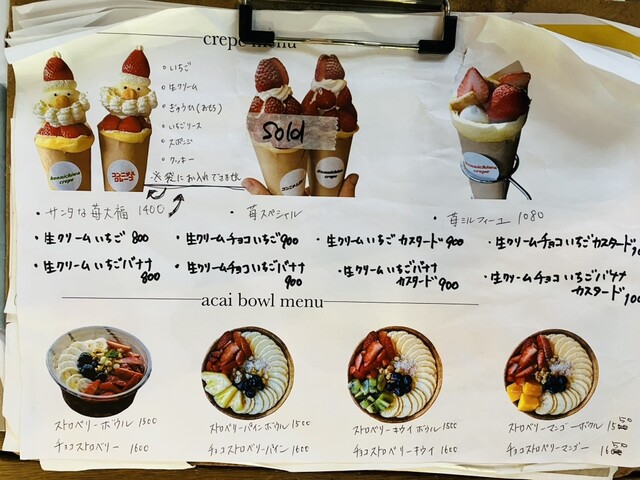 crepe menu
• いちご
• 生クリーム
• ぎゅうひ(おもち)
• いちごソース
• スポンジ
• クッキー
※袋にお入れできません
Sold
• サンタな苺大福 1400
• 苺スペシャル
• 苺ミルフィーユ 1080
• 生クリームいちご 800
• 生クリームチョコいちご 900
• 生クリームいちごカスタード 900
• 生クリームチョコいちごカスタード
• 生クリームいちごバナナ 800
• 生クリームチョコいちごバナナ 900
• 生クリームいちごバナナカスタード 900
• 生クリームチョコいちごバナナカスタード
acai bowl menu
ストロベリーボウル 1500
チョコストロベリー 1600
ストロベリーパインボウル 1500
チョコストロベリーパイン 1600
ストロベリーキウイボウル 1500
チョコストロベリーキウイ 1600
ストロベリーマンゴーボウル
チョコストロベリーマンゴー